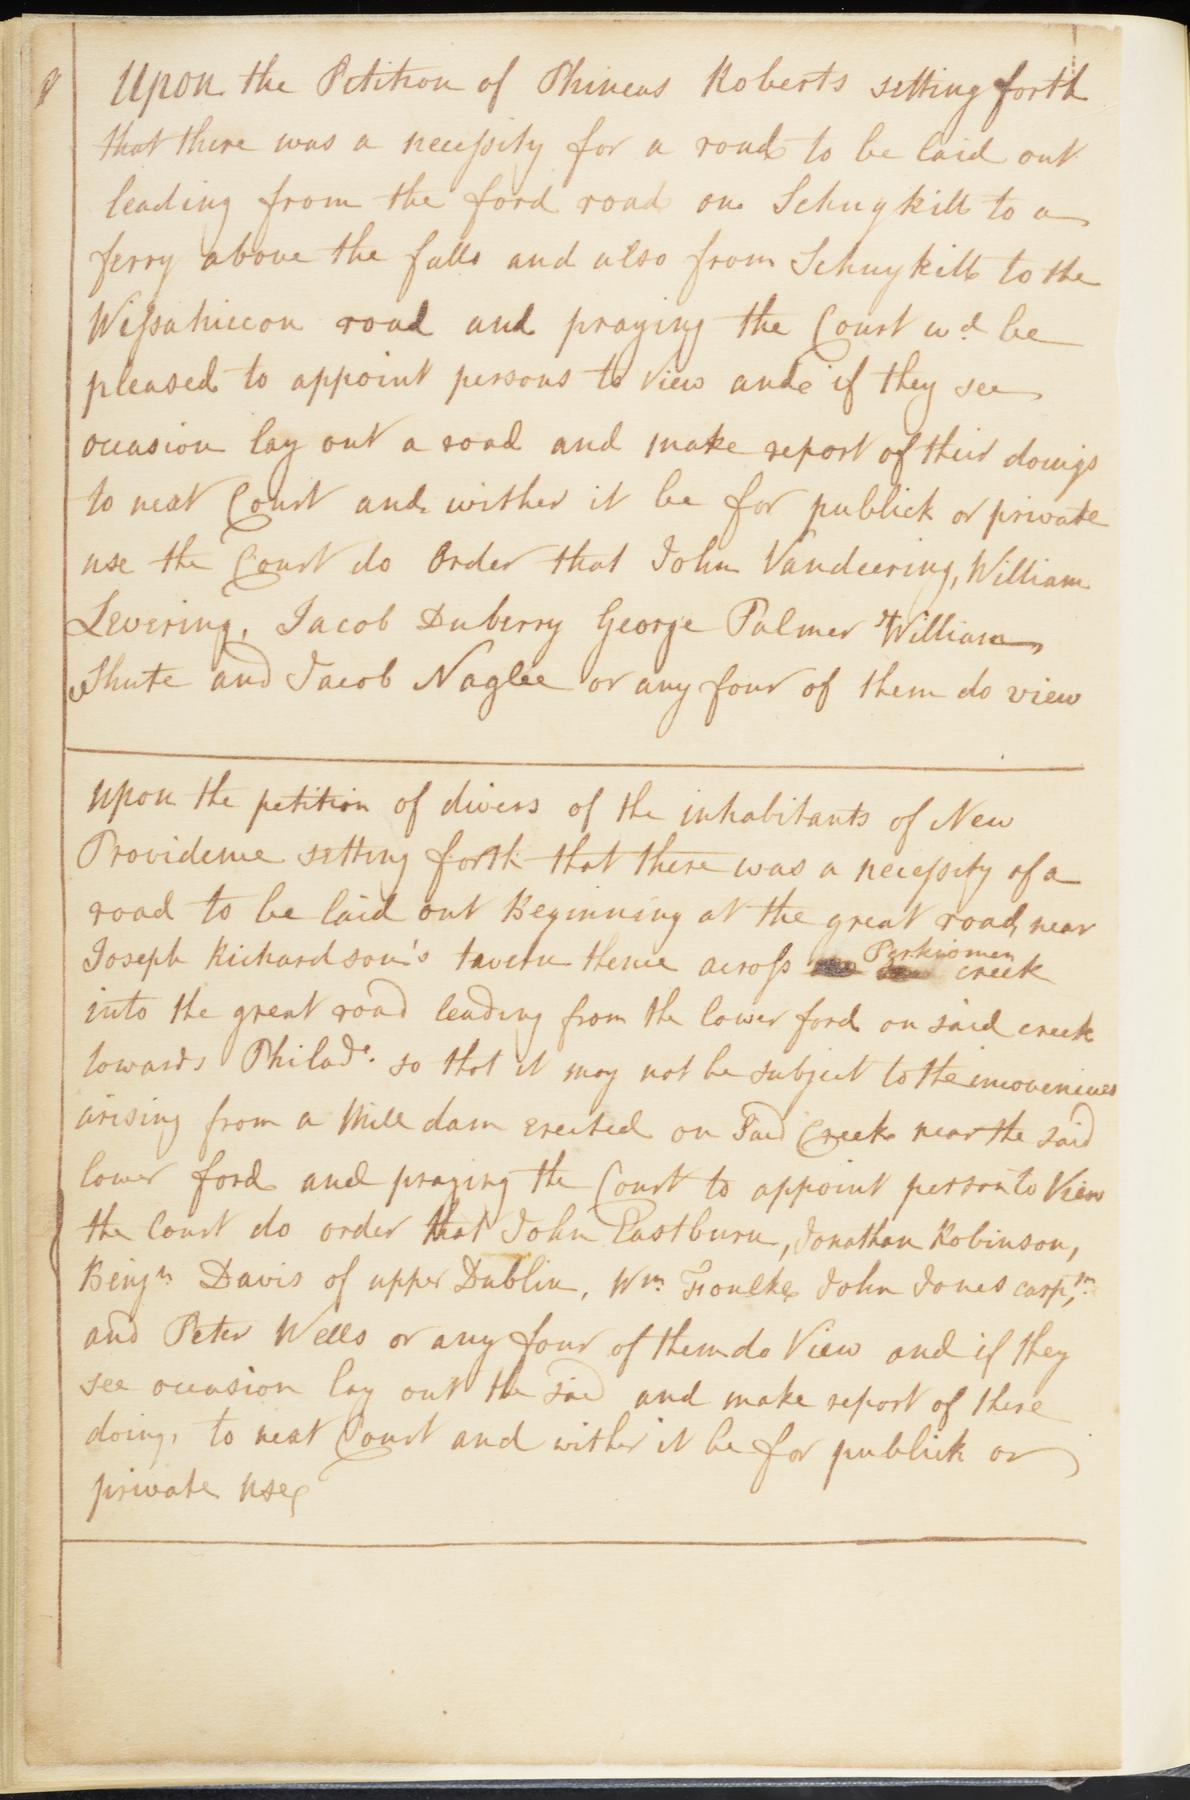 Upon the Petition of Phineas Roberts setting forth
that there was a necessity for a road to be laid out
leading from the ford road on Schuykill to a
ferry above the falls and also from Schuykill to the
Wissahiccon road and praying the Court wd be
pleased to appoint persons to view and if they see
occasion lay out a road and make report of their doings
to next Court and wither it be for publick or private
use the Court do order that John Vandeering, William
Levering, Jacob Duberry George Palmer William
Shute and Jacob Naglee or any four of them do view
Upon the petition of divers of the inhabitants of New
Providence setting forth that there was a necessity of a
road to be laid out Beginning at the great road near
Joseph Richardson's tavern thence across Perkiomen creek
into the great road leading from the lower ford on said creek
towards Philada. so that it may not be subject to the inconveniences
arising from a Mill dam erected on said Creek near the said
lower ford and praying the Court to appoint person to View
the Court do order that John Eastburn, Jonathan Robinson,
Benjn Davis of upper Dublin, Wm. Foulke John Jones carpr,
and Peter Wells or any four of them do View and if they
see occasion lay out the said and make report of there
doing, to next Court and wither it be for publick or
private use